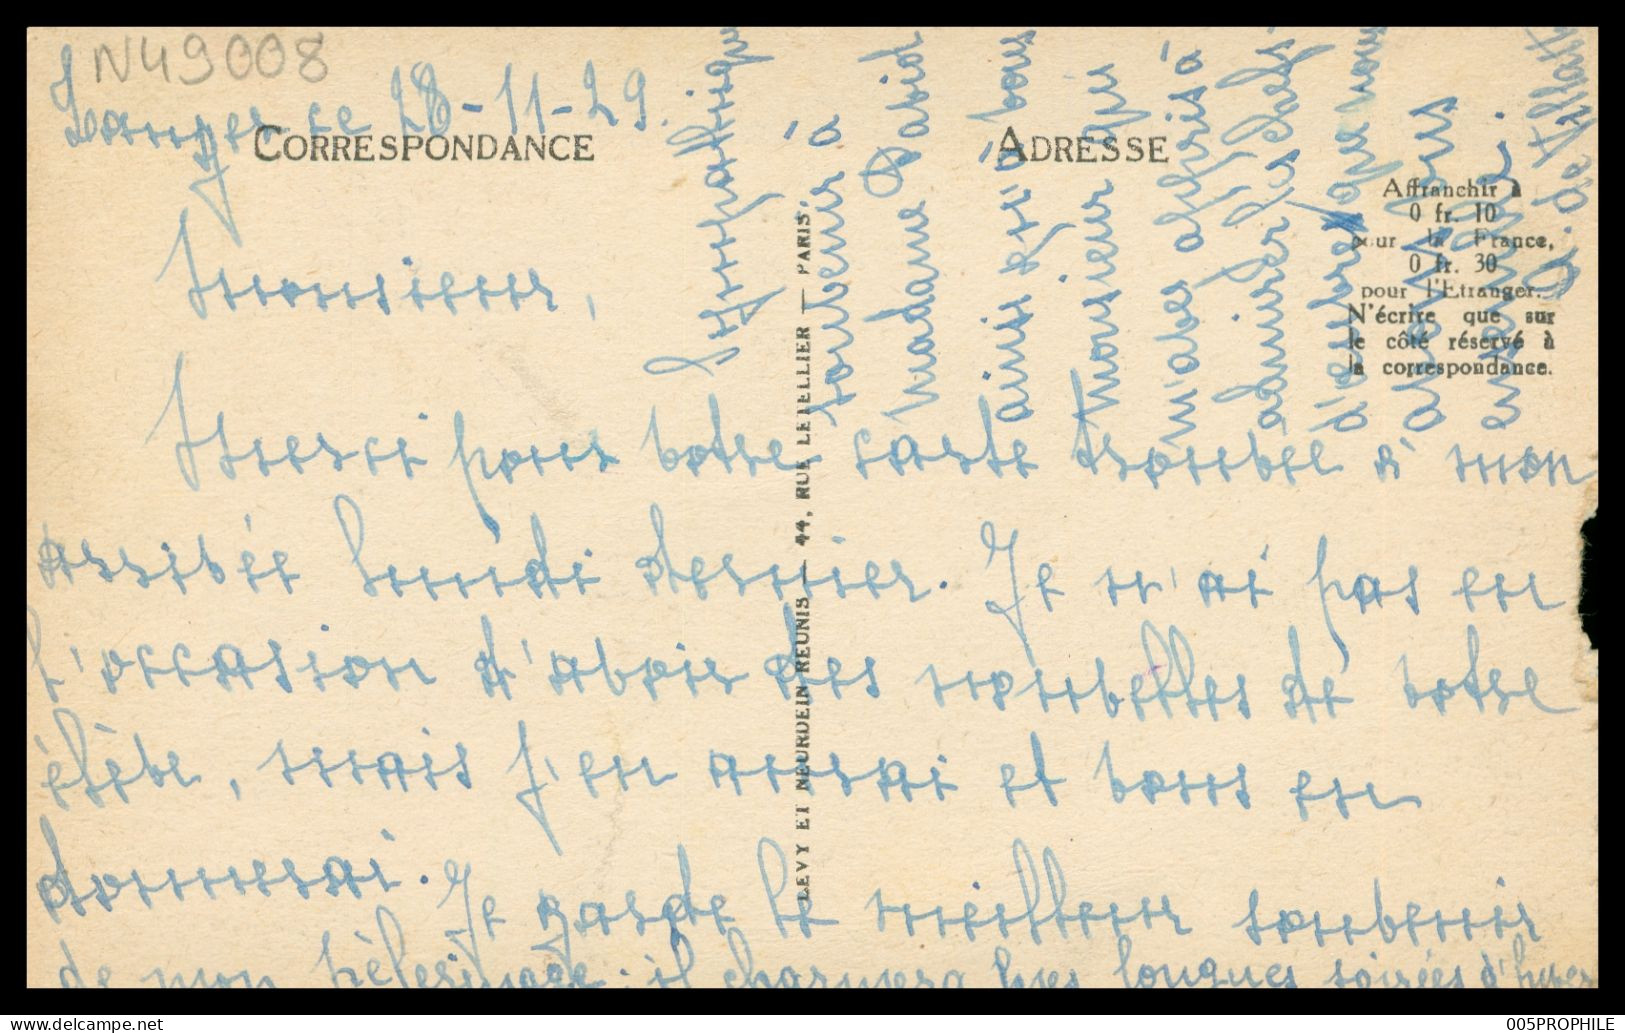 N49008
ce 28-11-29.
CORRESPONDANCE
ADRESSE
Affranchir à
0 fr. 10
pour la France,
0 fr. 30
pour l'Etranger.
N'écrire que sur
le côté réservé à
la correspondance.
Monsieur,
Merci pour votre carte trouvée à mon
arrivée lundi dernier. Je n'ai pas eu
l'occasion d'avoir des nouvelles de votre
élève, mais j'en aurai et vous en
donnerai. Je garde le meilleur souvenir
de mon pèlerinage : il charmera mes longues soirées d'hiver
sympathique
souvenir à
Madame David
ainsi qu'à vous
Monsieur qui
m'avez appris à
admirer les
d'œuvre que nous
LEVY ET NEURDEIN REUNIS — 44, RUE LETELLIER — PARIS.
005PROPHILE
www.delcampe.net